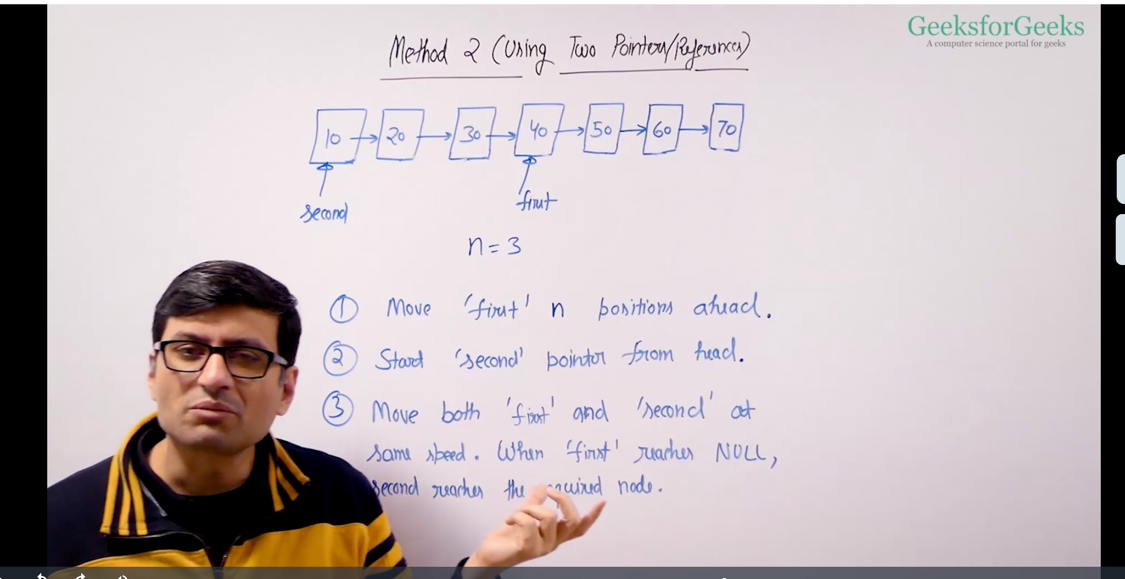 GeeksforGeeks
A computer science portal for geeks
Method 2 (Using Two Pointers/References)
10 20 30 40 50 60 70
second first
n = 3
① Move 'first' n positions ahead.
② Start 'second' pointer from head.
③ Move both 'first' and 'second' at
same speed. When 'first' reaches NULL,
second reaches the required node.